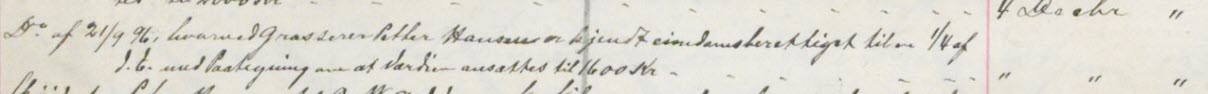 til 2000 Kr - - - - - - - - 4 Decbr "
Do af 21/9 96, hvorved Grosserer Petter Hansen er kjendt eiendomsberettiget til en 1/4 af
d. E. med Paategning om at Værdien ansættes til 1600 Kr - - - - - - " " "